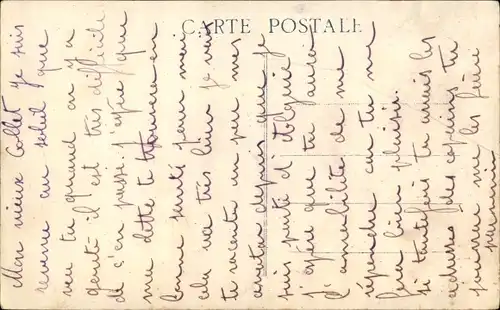 CARTE POSTALE
Mon vieux Collet je suis
revenu au soleil que
veu tu quand on y a
gouté il est très difficile
de s'en passé. J'espère que
ma lettre te trouvera en
bonne santé pour moi
cela va très bien je vais
te raconter un peu mes
depuis que je
suis parti d'
j'espère que tu aura
l'amabilité de me
répondre car tu me
fera bien plaisir.
si toutefois tu aurais les
adresses des copains tu
pourrais me les faire
parvenir